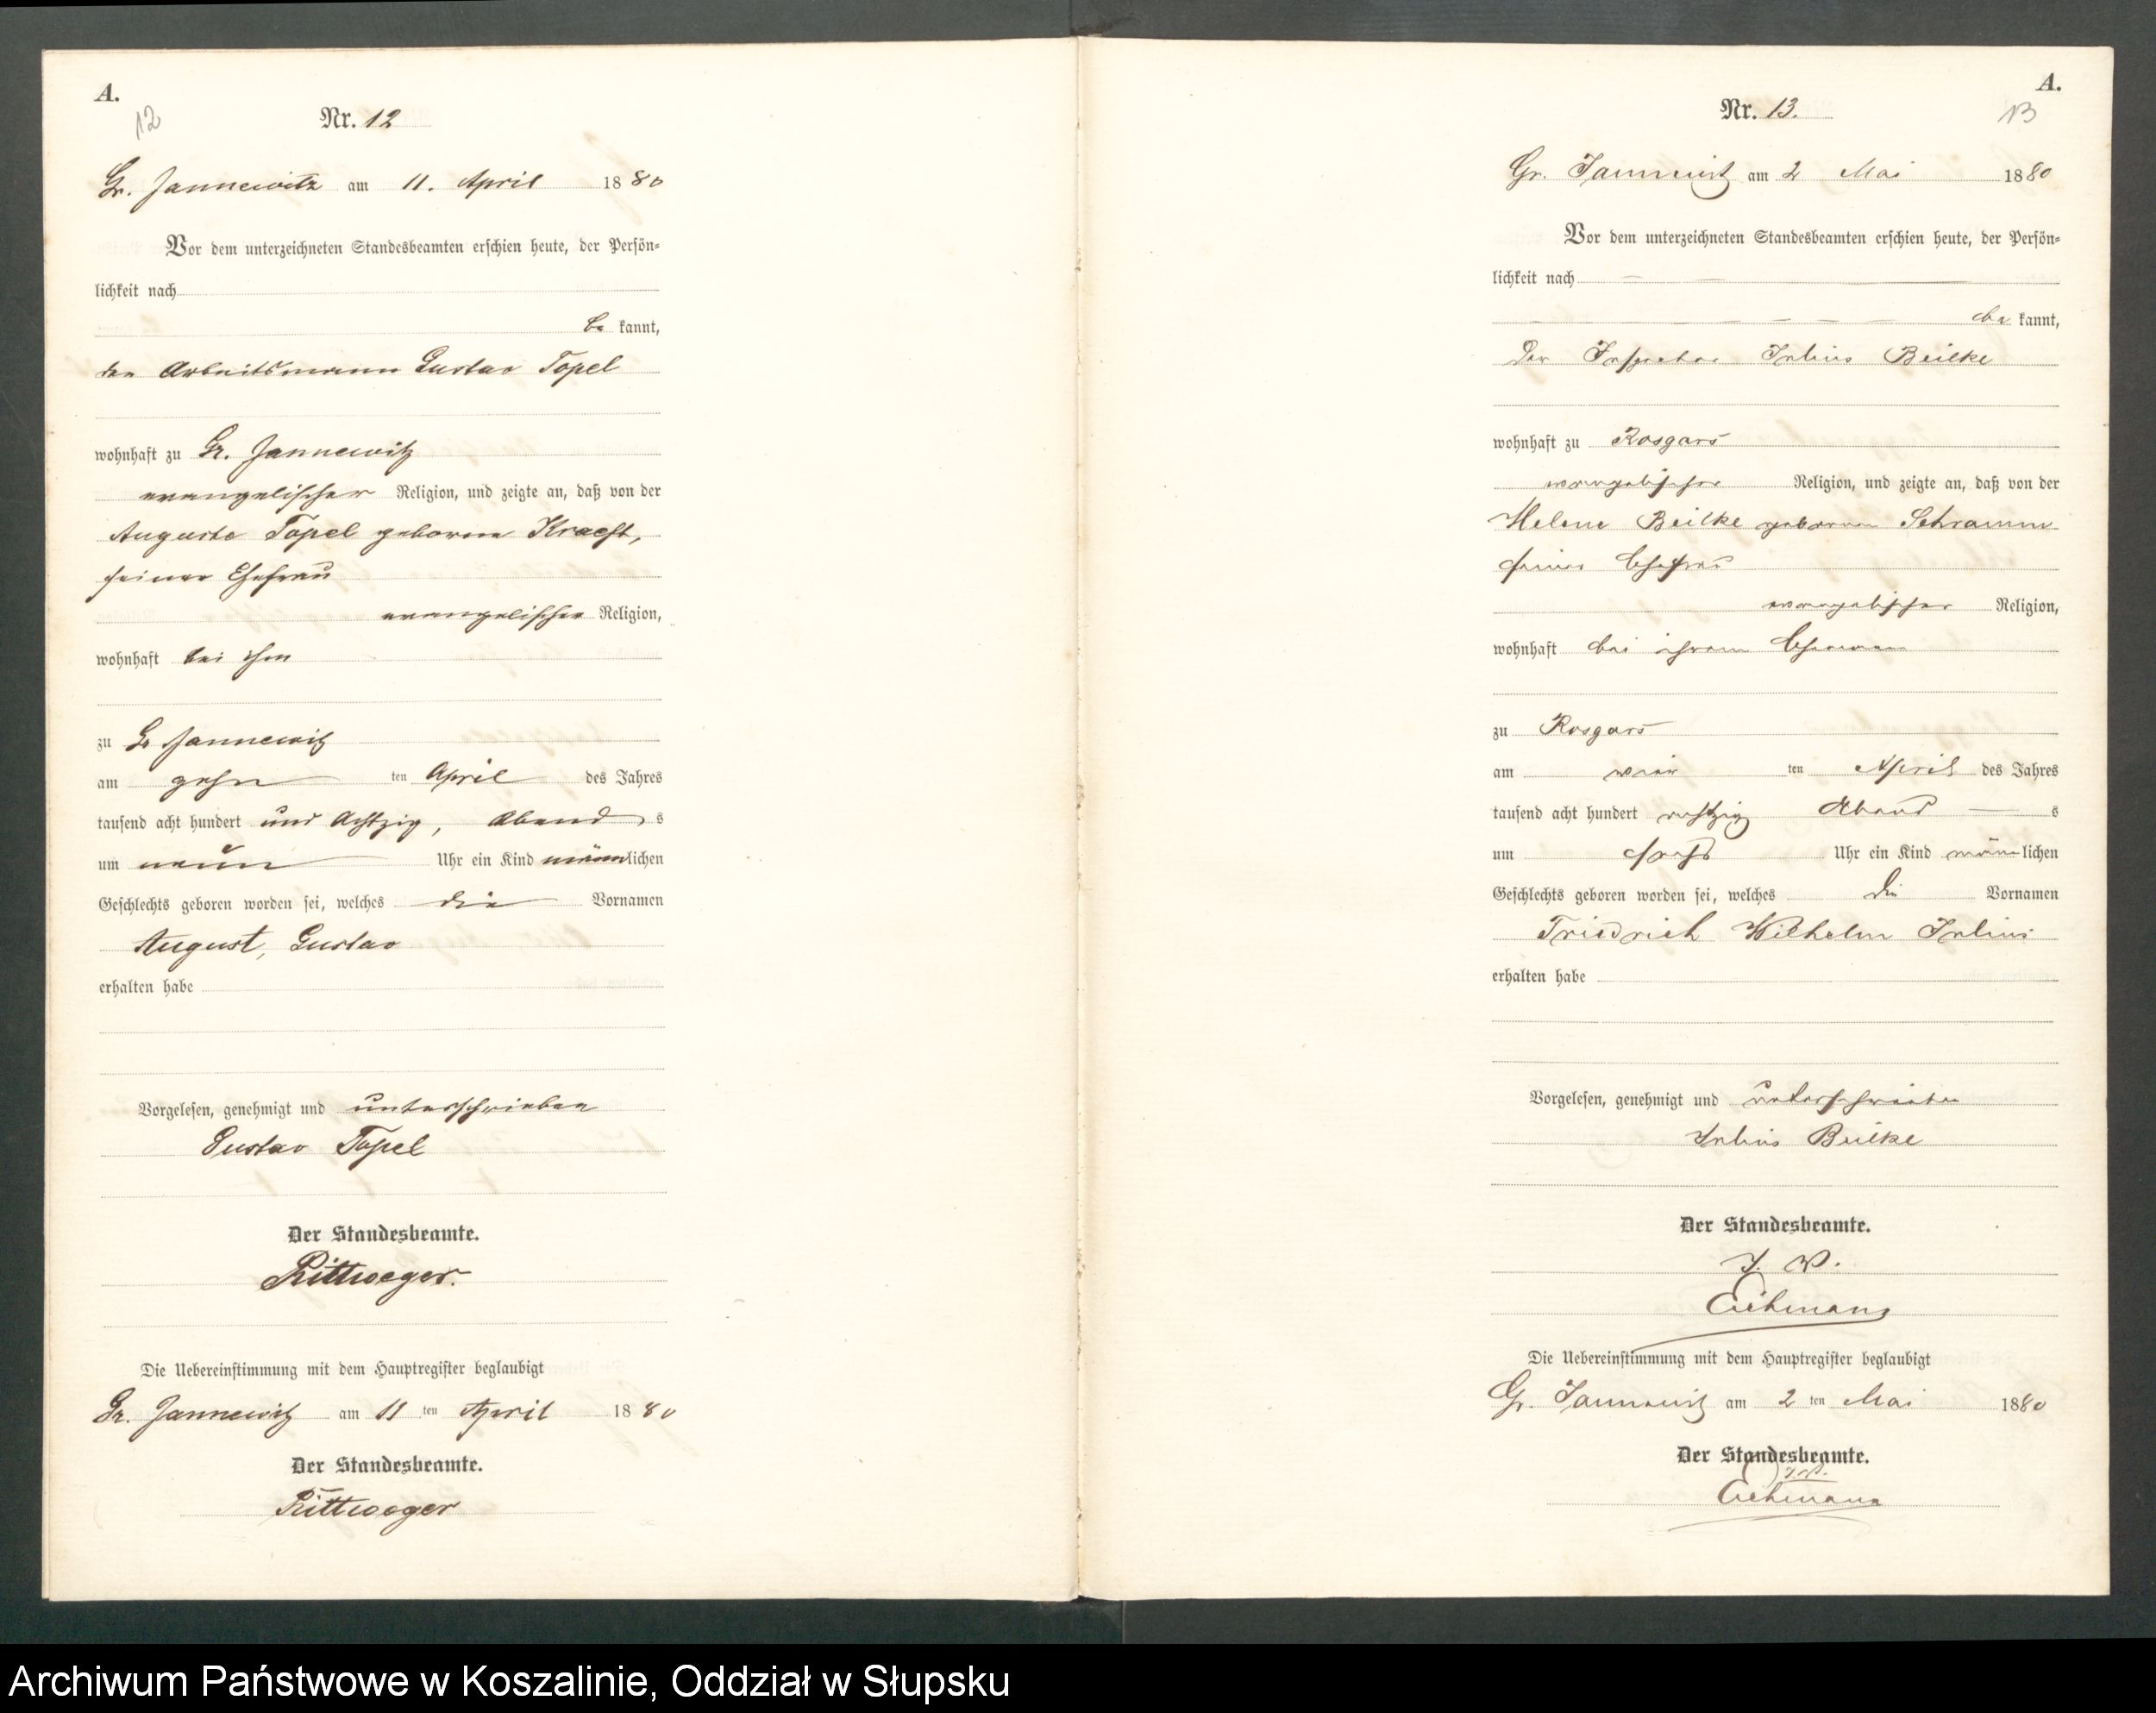 A.
12
Nr. 12
Gr. Jannewitz am 11. April 1880
Vor dem unterzeichneten Standesbeamten erschien heute, der Persön-
lichkeit nach
be kannt,
der Arbeitsmann Gustav Topel
wohnhaft zu Gr. Jannewitz
evangelischer Religion, und zeigte an, daß von der
Auguste Topel geborne Kraeft,
seiner Ehefrau
evangelischer Religion,
wohnhaft bei ihm
zu Gr Jannewitz
am zehn ten April des Jahres
tausend acht hundert und Achtzig, Abend s
um neun Uhr ein Kind männlichen
Geschlechts geboren worden sei, welches die Vornamen
August, Gustav
erhalten habe
Vorgelesen, genehmigt und unterschrieben
Gustav Topel
Der Standesbeamte.
Rittweger.
Die Uebereinstimmung mit dem Hauptregister beglaubigt
Gr. Jannewitz am 11 ten April 1880
Der Standesbeamte.
Rittweger
A.
13
Nr. 13.
Gr. Jannewitz am 2 Mai 1880
Vor dem unterzeichneten Standesbeamten erschien heute, der Persön-
lichkeit nach
be kannt,
Der Inspector Julius Beilke
wohnhaft zu Rosgars
evangelischer Religion, und zeigte an, daß von der
Helene Beilke geborenen Schramm
seiner Ehefrau
evangelischer Religion,
wohnhaft bei ihrem Ehemann
zu Rosgars
am vier ten April des Jahres
tausend acht hundert achtzig Abend s
um sechs Uhr ein Kind männlichen
Geschlechts geboren worden sei, welches die Vornamen
Friedrich Wilhelm Julius
erhalten habe
Vorgelesen, genehmigt und unterschrieben
Julius Beilke
Der Standesbeamte.
I. V.
Die Uebereinstimmung mit dem Hauptregister beglaubigt
Gr. Jannewitz am 2 ten Mai 1880
Der Standesbeamte.
I. V.
Archiwum Państwowe w Koszalinie, Oddział w Słupsku